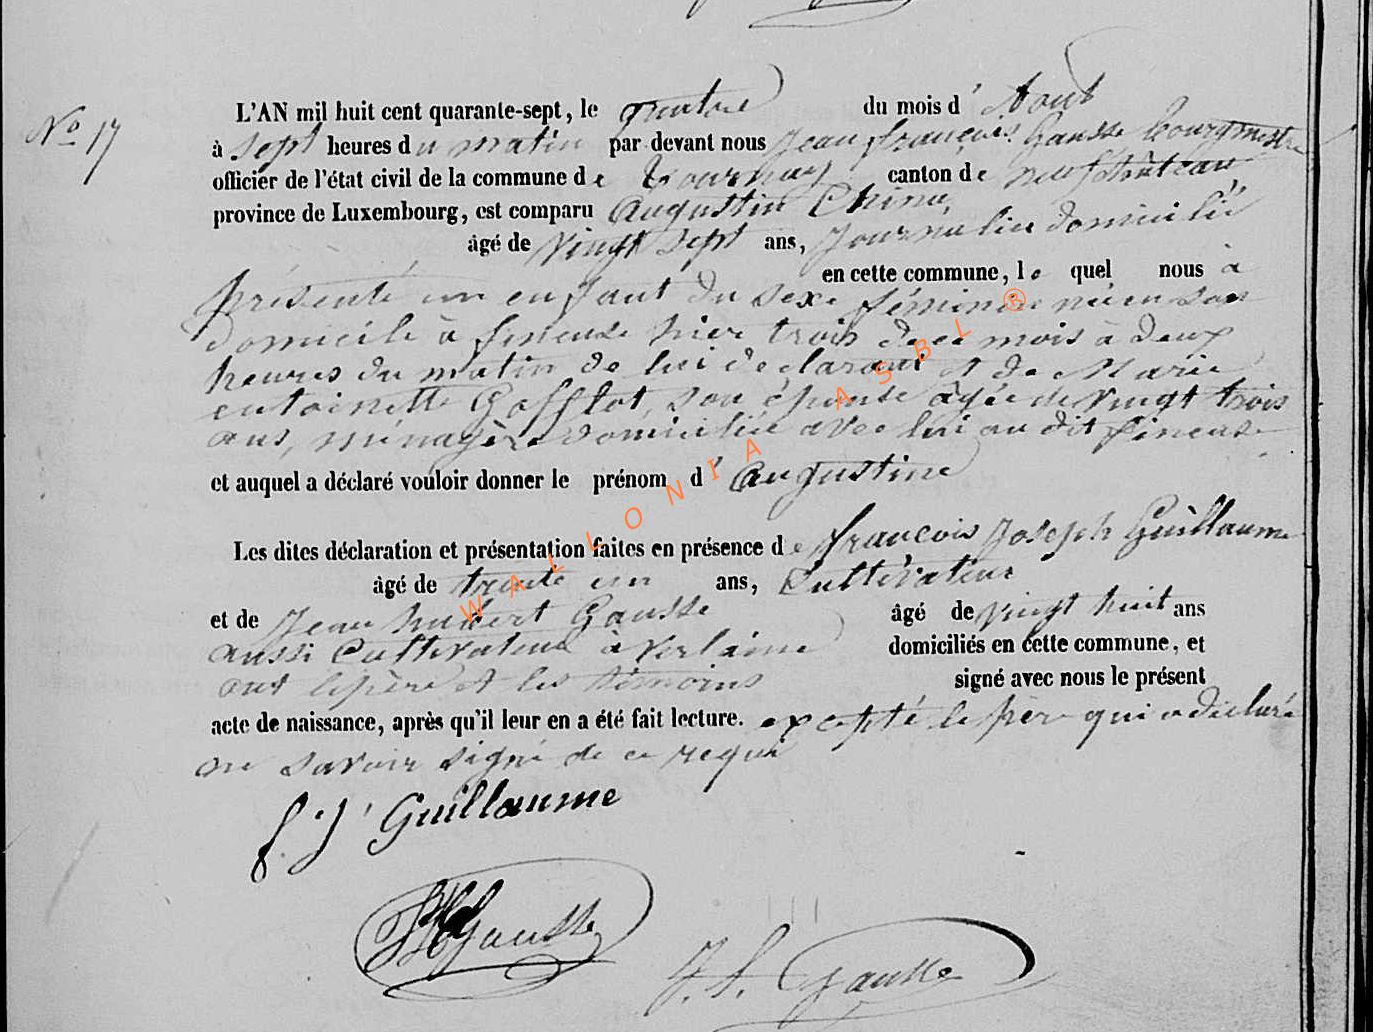 No 17
L'AN mil huit cent quarante-sept, le quatre du mois d' Aout
à sept heures du matin par devant nous Jean françois Gausse bourgmestre
officier de l'état civil de la commune de Tournay canton de neufchâteau
province de Luxembourg, est comparu Augustin China,
âgé de vingt sept ans, Journalier domicilié
en cette commune, le quel nous à
présenté un enfant du sexe féminin née en son
domicile à fineuse hier trois de ce mois à deux
heures du matin de lui déclarant et de Marie
entoinette Gofflot, son épouse âgée de vingt trois
ans, ménagère domiciliée avec lui au dit fineuse
et auquel a déclaré vouloir donner le prénom d' Augustine
Les dites déclaration et présentation faites en présence de françois Joseph Guillaume
âgé de trente un ans, Cultivateur
et de Jean hubert Gausse âgé de vingt huit ans
aussi Cultivateur à verlaine domiciliés en cette commune, et
ont le père et les témoins signé avec nous le présent
acte de naissance, après qu'il leur en a été fait lecture. excepté le père qui a déclaré
ne savoir signé de ce requi
f. J Guillaume
JH Gausse
J. f. Gausse
WALLONIA ASBL ®